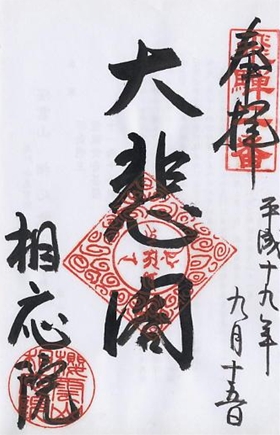 奉拝
平成十九年
九月十五日
大悲閣
相応院